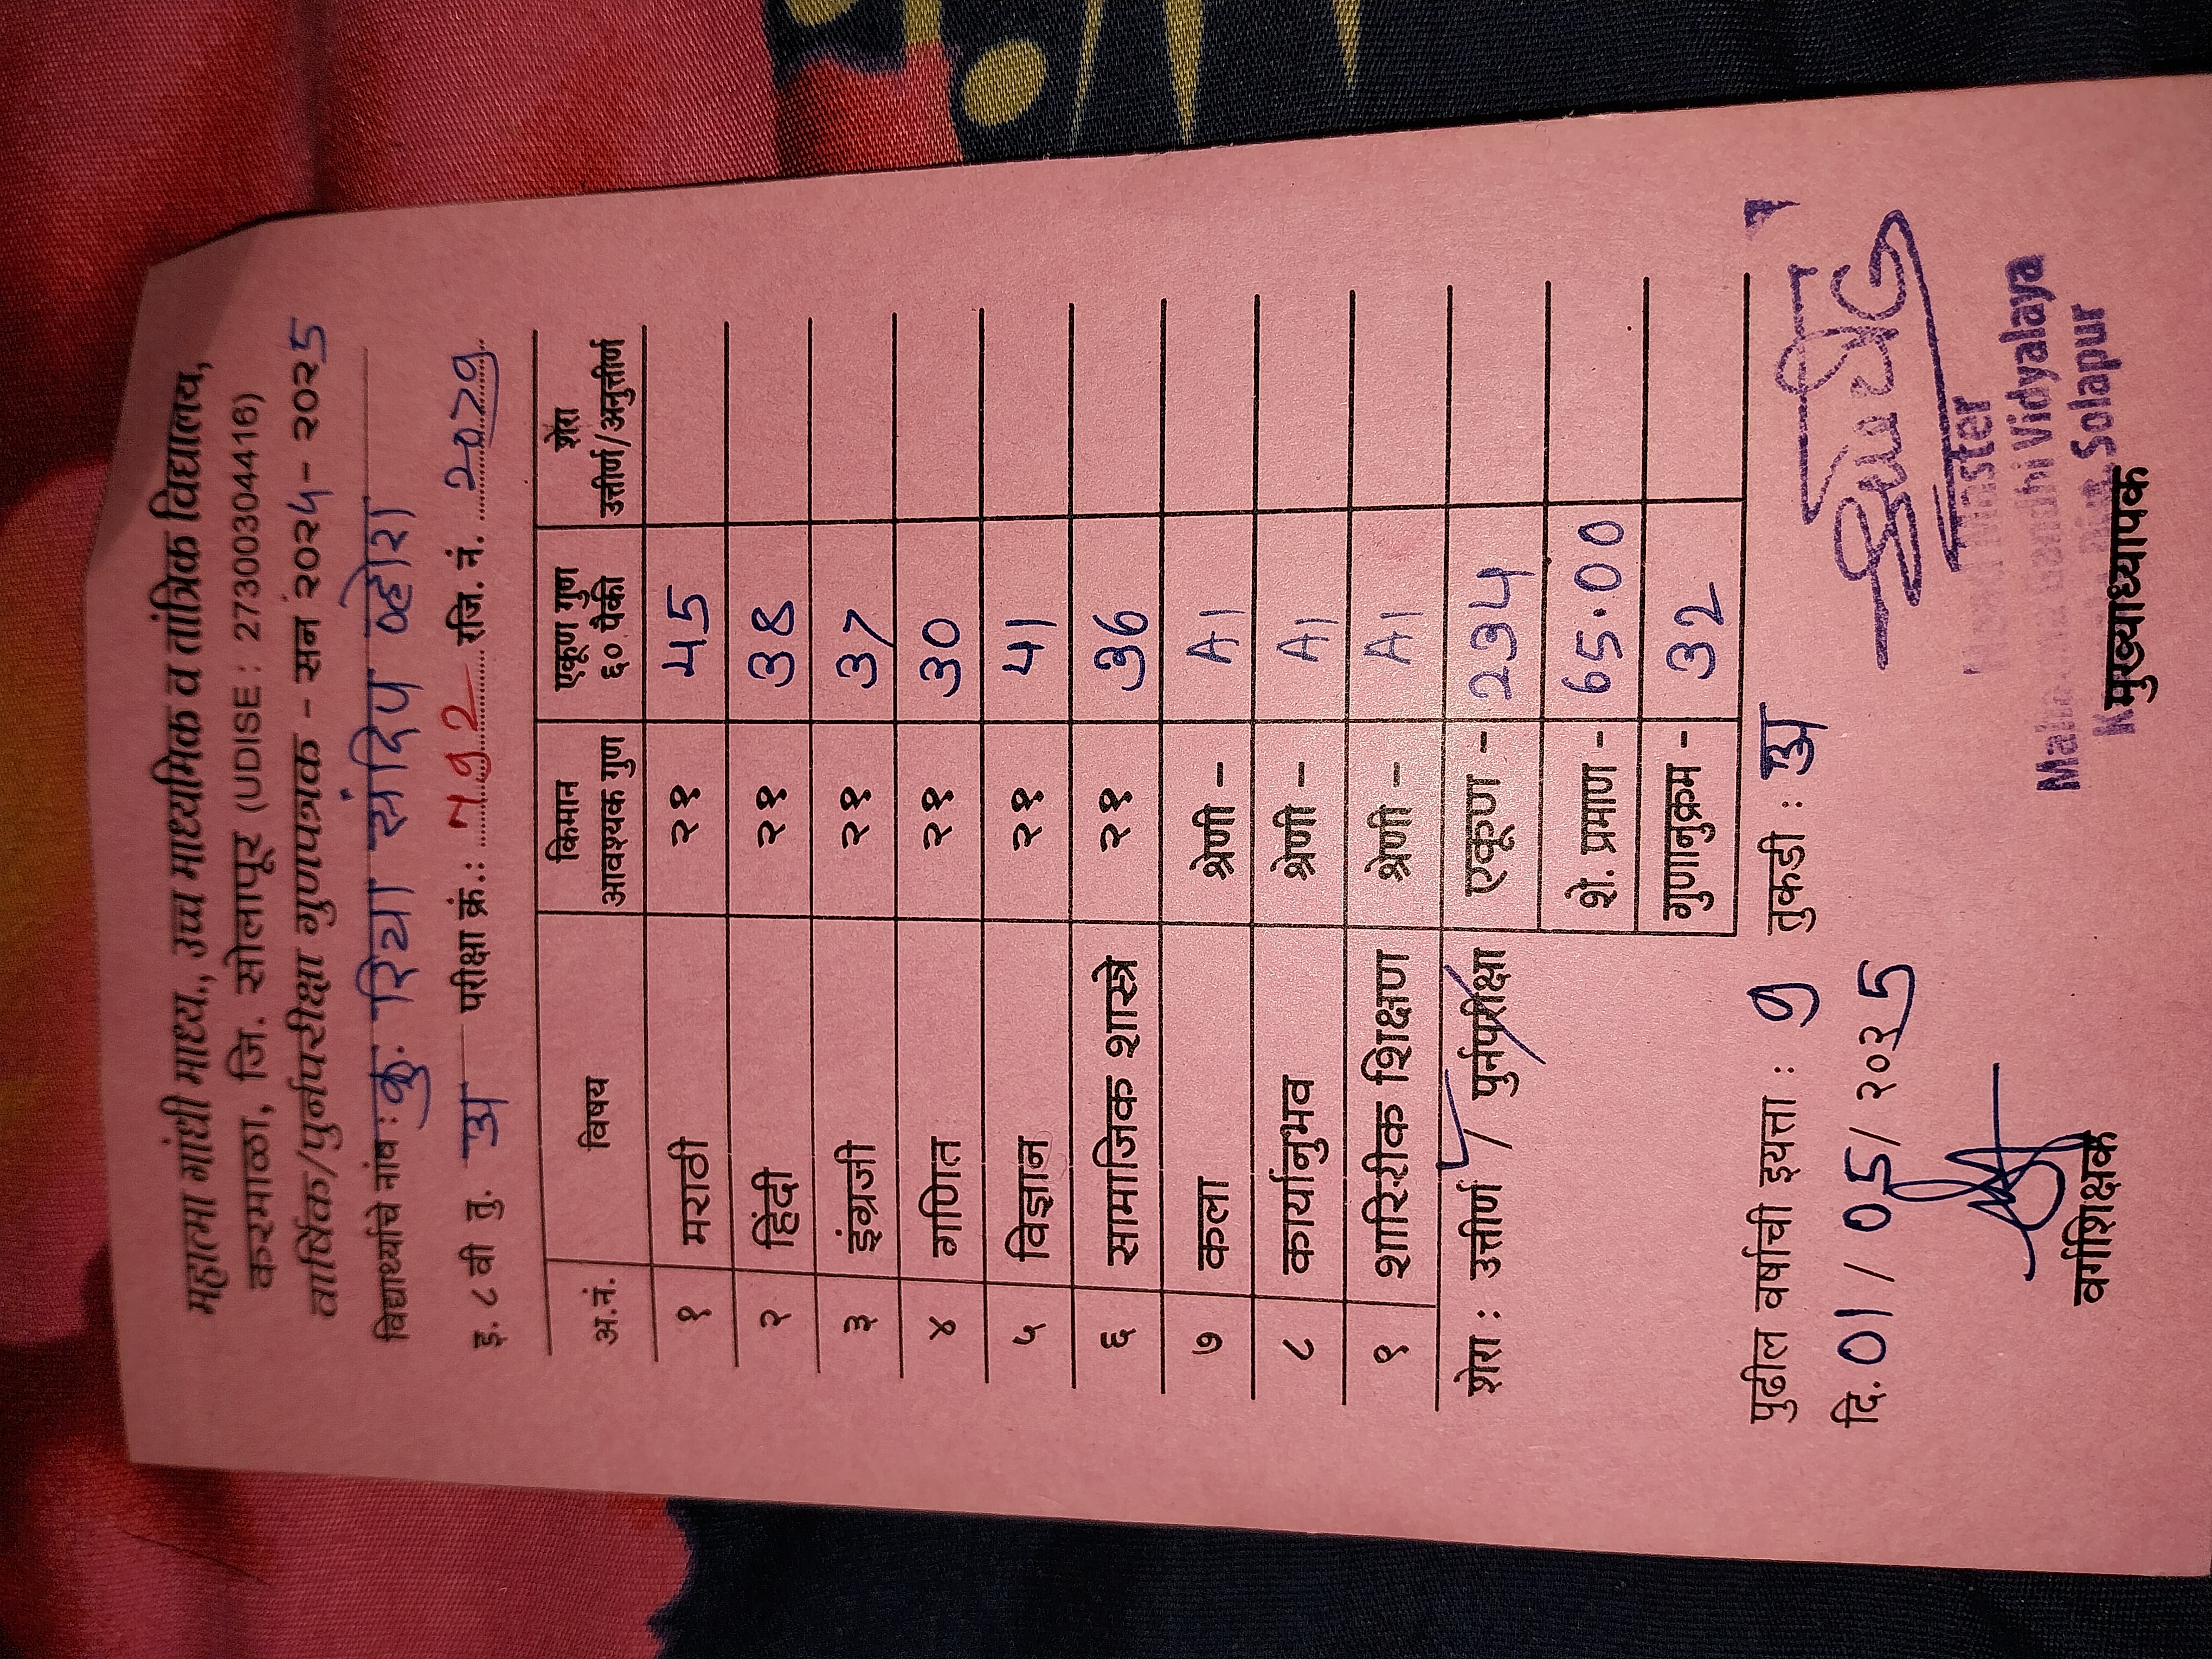 महात्मा गांधी माध्य., उच्च माध्यमिक व तांत्रिक विद्यालय,
करमाळा, जि. सोलापूर (UDISE : 27300304416)
वार्षिक/पुर्नपरीक्षा गुणपत्रक - सन २०२५ - २०२5
विद्यार्थ्याचे नांव : कु. रिया संदिप व्होरा
इ. ८ वी तु. अ परीक्षा क्रं.: रजि. नं. 2079
अ.नं. विषय किमान आवश्यक गुण एकूण गुण ६० पैकी शेरा उत्तीर्ण/अनुत्तीर्ण
१ मराठी २१ 45
२ हिंदी २१ 38
३ इंग्रजी २१ 37
४ गणित २१ 30
५ विज्ञान २१ 41
६ सामाजिक शास्त्रे २१ 36
७ कला श्रेणी - A1
८ कार्यानुभव श्रेणी - A1
९ शारिरीक शिक्षण श्रेणी - A1
शेरा : उत्तीर्ण / पुर्नपरीक्षा एकूण - 234
शे. प्रमाण - 65.00
गुणानुक्रम - 32
पुढील वर्षाची इयत्ता : 9 तुकडी : अ
दि. 01 / 05 / २०२5
Gandhi Vidyalaya
Solapur
वर्गशिक्षक मुख्याध्यापक